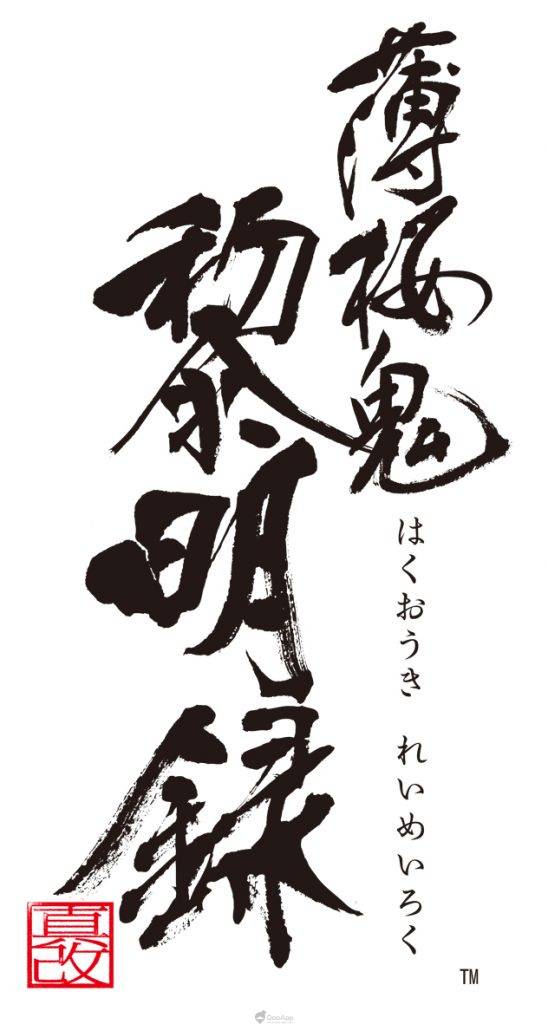 薄桜鬼
黎明録
はくおうき れいめいろく
真改
TM
QooApp